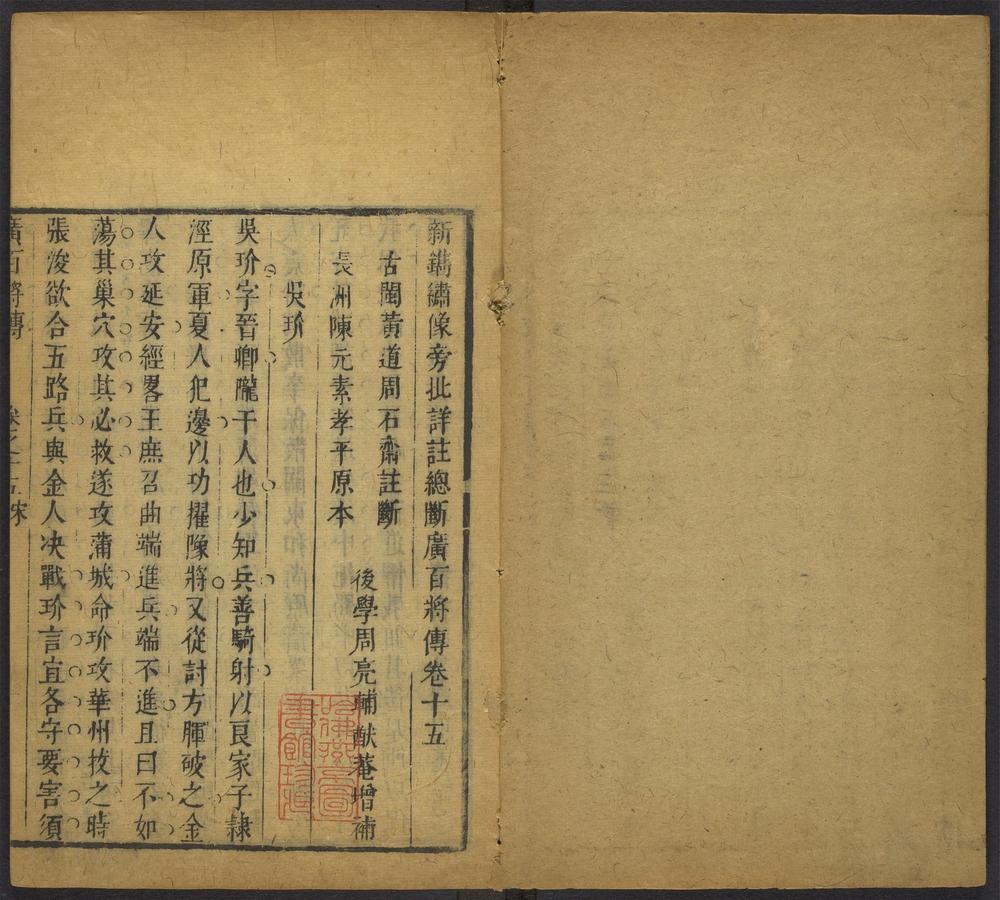 新鐫繡像旁批詳註總斷廣百將傳卷十五
古閩黃道周石齋註斷
後學周亮輔猷菴增補
長洲陳元素孝平原本
吳玠
吳玠字晉卿隴干人也少知兵善騎射以良家子隸
涇原軍夏人犯邊以功擢隊將又從討方臘破之金
人攻延安經畧王庶召曲端進兵端不進且曰不如
蕩其巢穴攻其必救遂攻蒲城命玠攻華州拔之時
張浚欲合五路兵與金人决戰玠言宜各守要害須
廣百將傳 卷之十五 宋
哈佛燕京圖書館珍藏